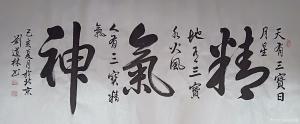 天有三寶日
月星
精
地有三寶
水火風
氣
人有三寶精
氣
神
己亥夏月於北京
劉道林書